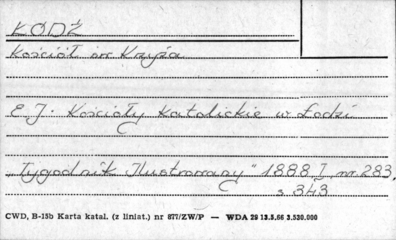 ŁÓDŹ
Kościół św. Krzyża
E. J. Kościoły katolickie w Łodzi
„Tygodnik Ilustrowany" 1888 I, nr. 283,
s 343
CWD, B-15b Karta katal. (z liniat.) nr 877/ZW/P — WDA 29 13.5.66 3.530.000